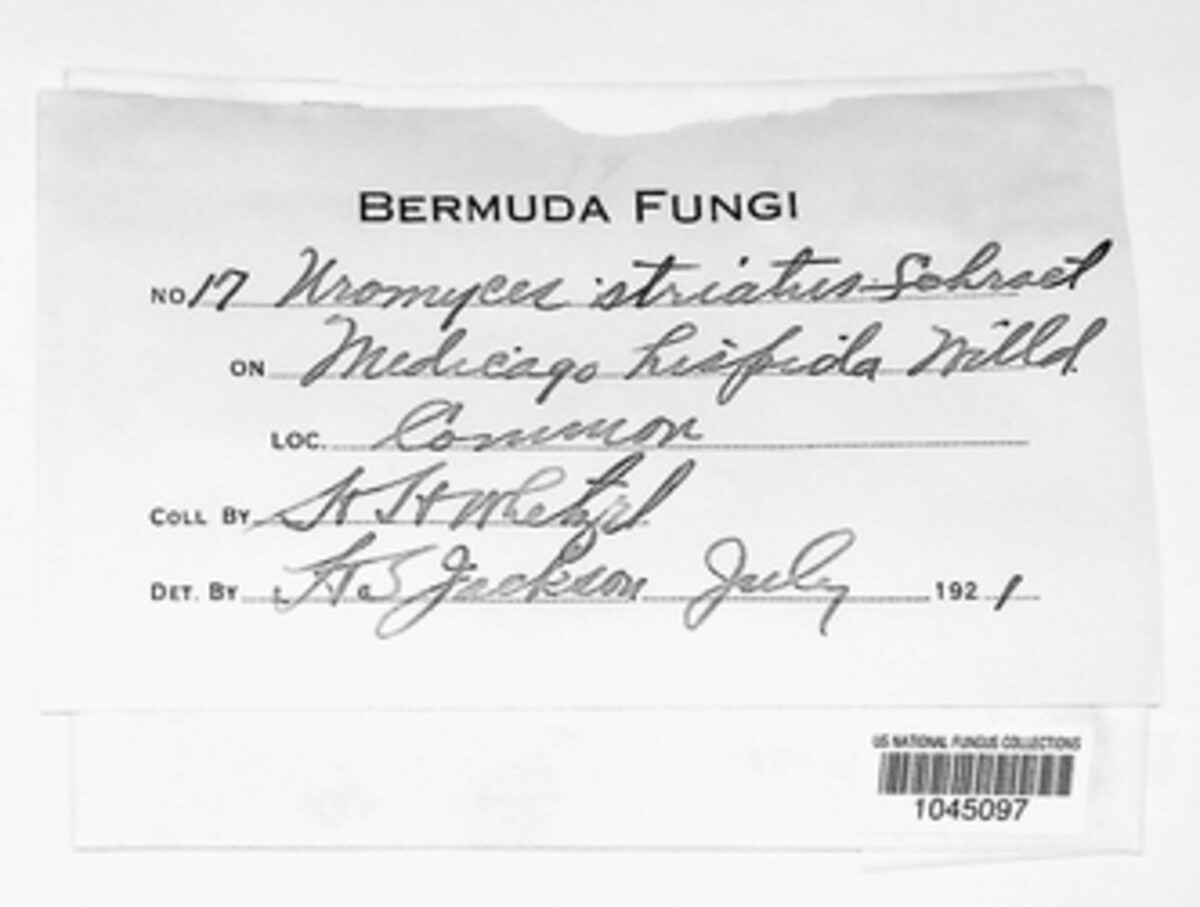 BERMUDA FUNGI
NO 17 Uromyces striatus Schroet
ON Medicago hispida Willd.
LOC. Common
COLL BY H H Whetzel
DET. BY H S Jackson July 1921
US NATIONAL FUNGUS COLLECTIONS
1045097